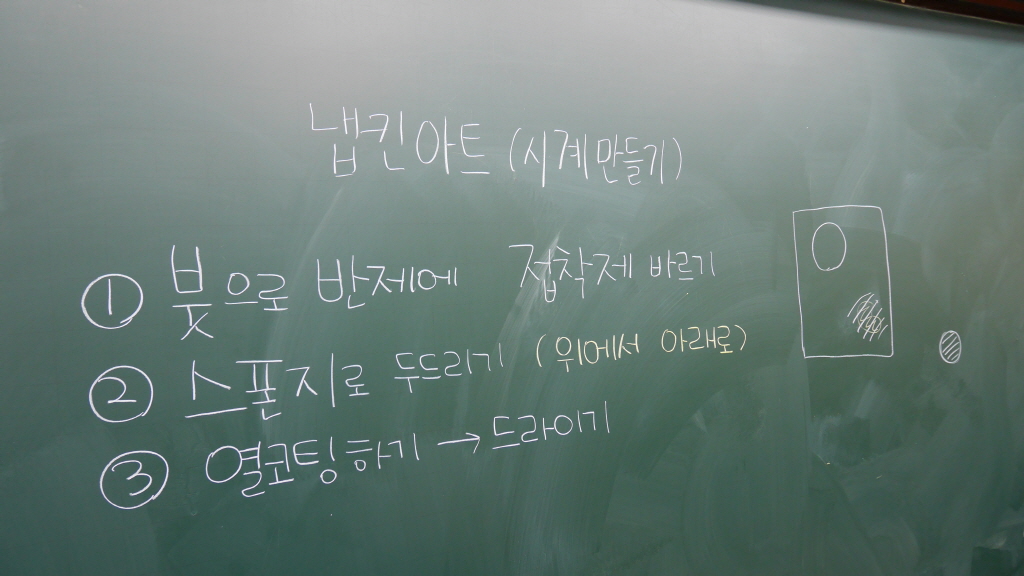 냅킨아트 (시계만들기)
① 붓으로 반제에 접착제 바르기
② 스폰지로 두드리기 (위에서 아래로)
③ 열코팅하기 → 드라이기